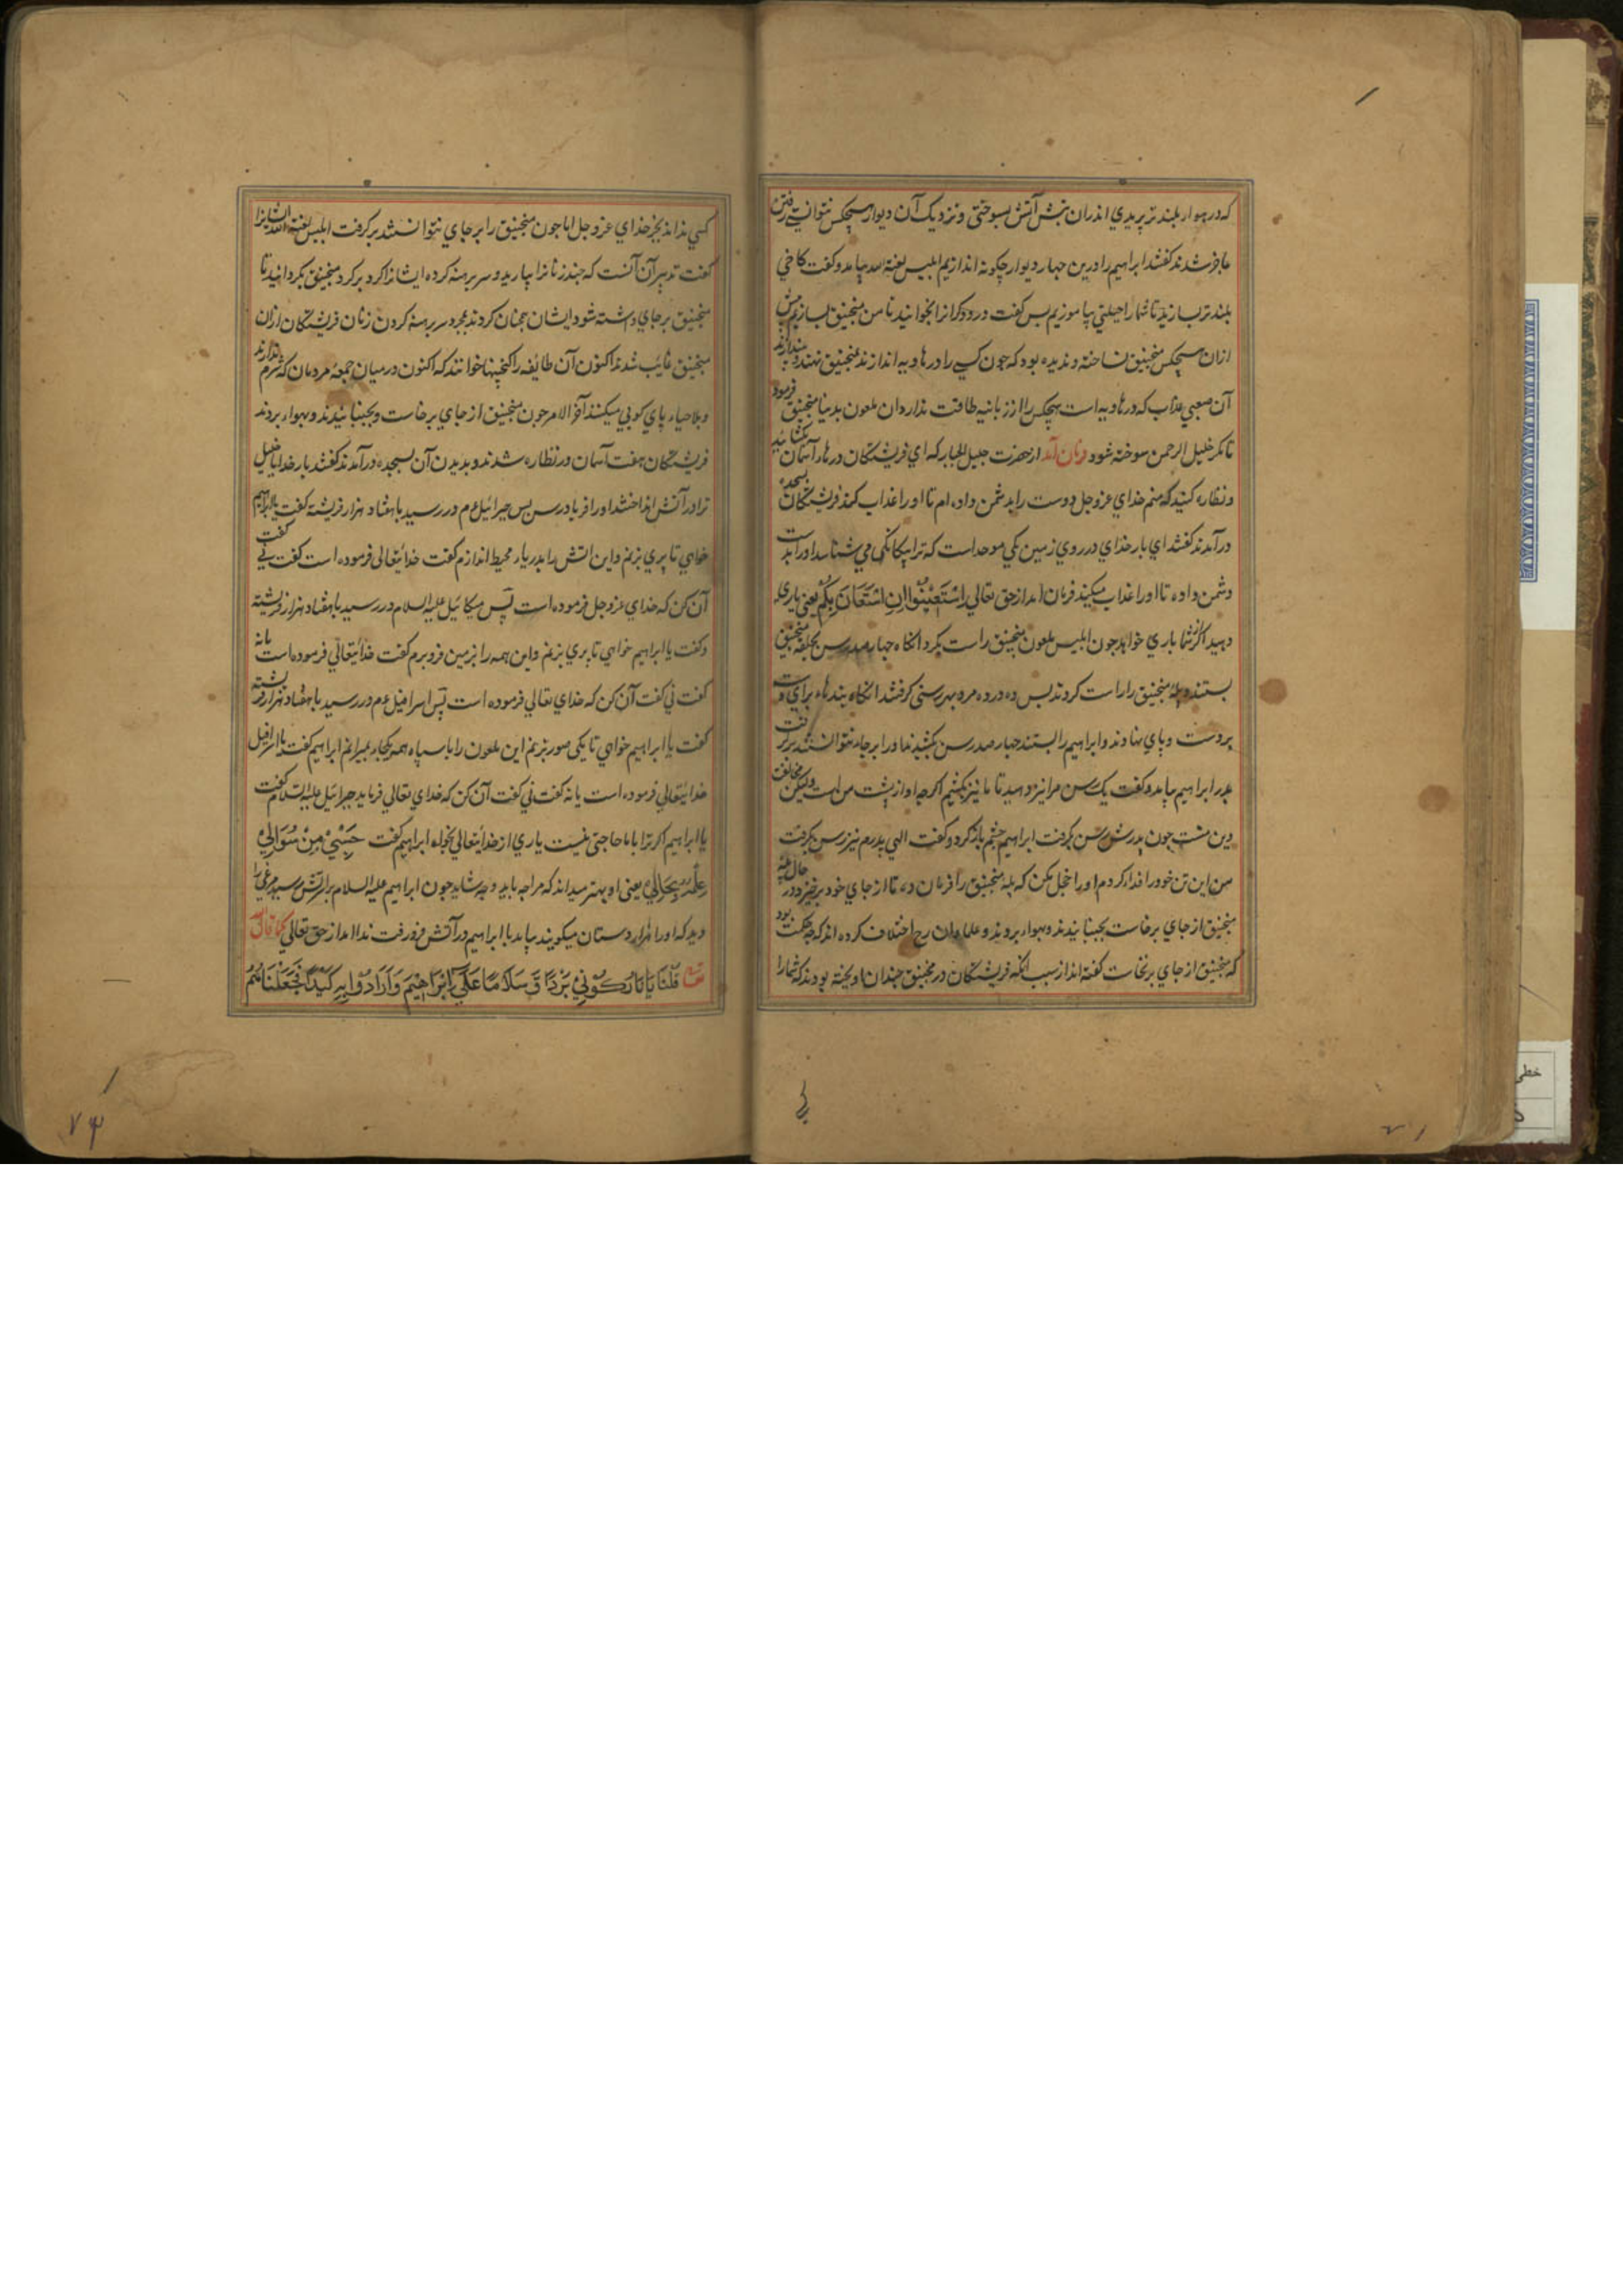 که در هوا بلندتر پریدی اندران تبش آتش بسوختی و نزدیک آن دیوار هیچکس نتوانستی رفتن
عاجز شدند گفتند ابراهیم را درین چهار دیوار چگونه اندازیم ابلیس لعنة الله بیامد و گفت کاخی
بلندتر بسازید تا شما را حیلتی بیاموزیم پس گفت درودگرانرا بخوانید تا من منجنیق بسازیم پیش
ازان هیچکس منجنیق نساخته و ندیده بود که چون کسی را در هاویه اندازند منجنیق نهند و بیندازند
آن صعبی عذاب که در هاویه است هیچکس را از زبانیه طاقت ندارد آن ملعون بدینا منجنیق فرمود
تا مگر خلیل الرحمن سوخته شود فرمان آمد از حضرت جلیل الجبار که ای فریشتگان درهاء آسمان بگشائید
و نظاره کنید که منم خدای عزوجل دوست را بدشمن داده ام تا او را عذاب کند فریشتگان بسجده
در آمدند گفتند ای بار خدای در روی زمین یکی موحد است که ترا بیکانگی می شناسد او را بدست
دشمن داده تا او را عذاب میکنند فرمان امد از حق تعالی اسْتَعِیْنُوْا اِنِ اسْتَعَانَ بِکُمْ یعنی یاری
دهید اگر از شما یاری خواهد چون ابلیس ملعون منجنیق راست بکرد انگاه چهار صد رسن بحلقه منجنیق
بستند و پله منجنیق را راست کردند پس ده درده مرد بهر رسنی گرفتند انگاه بندهاء برای دست
بر دست و پای نهادند و ابراهیم را ببستند چهار صد رسن بکشیدند او را بر جاء نتوانستند بر گرفت
پدر ابراهیم بیامد و گفت یک رسن مرا نیز دهید تا ما نیز بکشیم اگرچه او از پشت من است ولیکن مخالفت
دین منست چون پدرش رسن بگرفت ابراهیم چشم باز کرد و گفت الهی پدرم نیز رسن بگرفت
من این تن خود را فدا کردم او را خجل مکن که پله منجنیق را فرمان ده تا از جای خود برخیزد در حال پله
منجنیق از جای برخاست بجنبانیدند و بهوا بردند و علما دران رح اختلاف کرده اند که چه حکمت بود
که منجنیق از جای برنخاست گفته اند از سبب انکه فریشتگان در منجنیق چندان اویخته بودند که شمار را
کسی نداند بجز خدای عزوجل اما چون منجنیق را بر جای نتوانستند برگرفت ابلیس لعنه الله ایشانرا
گفت تدبیر آن آنست که چند زنانرا بیارید و سر برهنه کرده ایشانرا گرد برگرد منجنیق بگردانید تا
منجنیق بر جای داشته شود ایشان همچنان کردند بمجرد سر برهنه کردن زنان فریشتگان ازان
منجنیق غایب شدند اکنون آن طائفه را کنجنیها خوانند که اکنون در میان جمعهٔ مردمان که شرم ندارند
و بلا حیاء پای کوبی میکنند آخر الامر چون منجنیق از جای برخاست و بجنبانیدند و بهوا بردند
فریشتگان هفت آسمان در نظاره شدند و بدیدن آن بسجده در آمدند گفتند بار خدایا خلیل
ترا در آتش انداختند او را فریاد رس پس جبرائیل ءم در رسید با هفتاد هزار فریشته گفت یا ابراهیم
خواهی تا پری بزنم و این اتش را بدریاء محیط اندازم گفت خدایتعالی فرموده است گفت نے گفت
آن کن که خدای عزوجل فرموده است پس میکائیل علیه السلام در رسید با هفتاد هزار فریشته
و گفت یا ابراهیم خواهی تا پری بزنم و این همه را بزمین فرو برم گفت خدایتعالی فرموده است یا نه
گفت نی گفت آن کن که خدای تعالی فرموده است پس اسرافیل ءم در رسید با هفتاد هزار فریشته
گفت یا ابراهیم خواهی تا یکی صور بزنم این ملعون را با سپاه همه یکجاء بمیرانم ابراهیم گفت یا اسرافیل
خدایتعالی فرموده است یا نه گفت نی گفت آن کن که خدای تعالی فرماید جبرائیل علیه السلام گفت
یا ابراهیم اگر ترا با ما حاجتی نیست یاری از خدایتعالی بخواه ابراهیم گفت حَسْبِیْ مِنْ سُوَالِیْ
عِلْمُهُ بِحَالِیْ یعنی او بهتر میداند که مرا چه باید و چه شاید چون ابراهیم علیه السلام بر آتش رسید مرغی را
دید که او را هزار دستان میگویند بیامد با ابراهیم در آتش فرو رفت ندا امد از حق تعالی کما قال الله
تعا قُلْنَا یَا نَارُ کُوْنِیْ بَرْدًا وَّ سَلَامًا عَلٰی اِبْرَاهِیْمَ وَاَرَادُوْا بِهِ کَیْدًا فَجَعَلْنَاهُمُ
۷۳
خطی